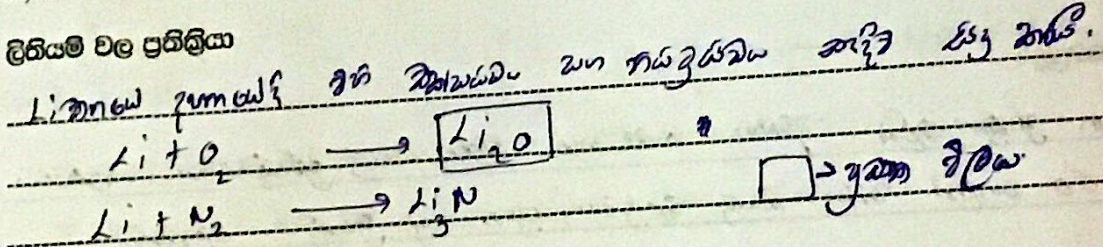 ලිතියම් වල ප්‍රතික්‍රියා
Li වාතයේ දහනයේදී එහි ඔක්සයිඩය සහ නයිට්‍රයිඩය සෑදීම සිදු කරයි.
Li + O₂ ⟶ Li₂O
Li + N₂ ⟶ Li₃N
→ ප්‍රධාන ඵලය